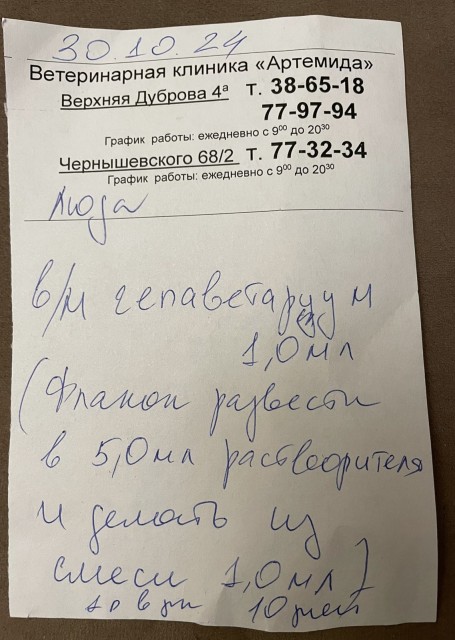 30.10.24
Ветеринарная клиника «Артемида»
Верхняя Дуброва 4а т. 38-65-18
77-97-94
График работы: ежедневно с 9⁰⁰ до 20³⁰
Чернышевского 68/2 т. 77-32-34
График работы: ежедневно с 9⁰⁰ до 20³⁰
Люда
в/м гепаветариум
1,0 мл
(Флакон развести
в 5,0 мл растворителя
и делать из
смеси 1,0 мл)
1 р в дн 10 дней